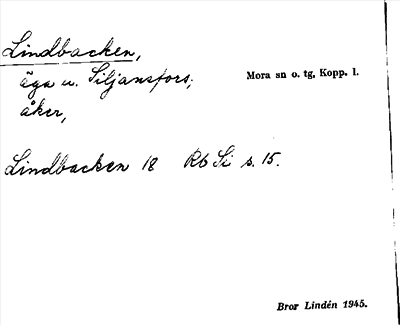 Lindbacken,
äga u. Siljansfors; Mora sn o. tg, Kopp. l.
åker,
Lindbacken 18 Rb Si s. 15.
Bror Lindén 1945.